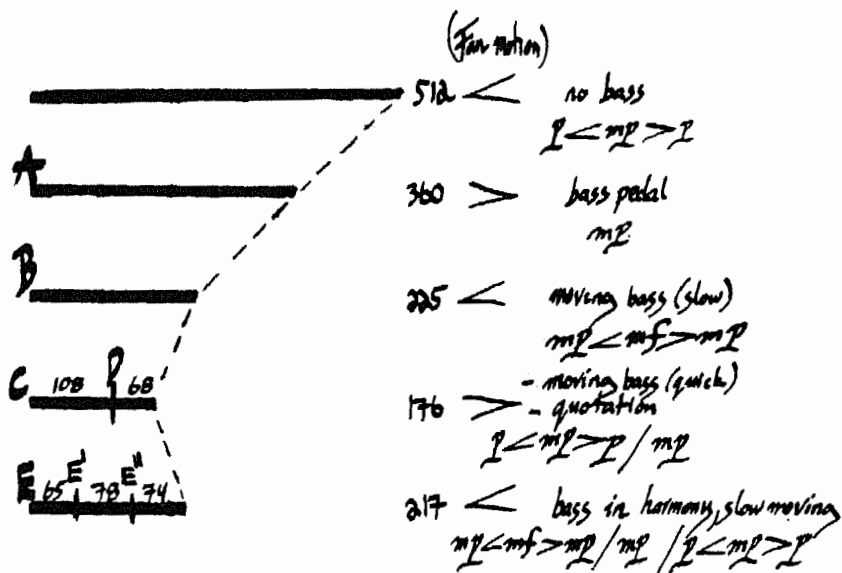 (Fan motion)
512 < no bass
p < mp > p
A
360 > bass pedal
mp
B
225 < moving bass (slow)
mp < mf > mp
C 108 D 68
176 > - moving bass (quick)
- quotation
p < mp > p / mp
E 65 E' 78 E" 74
217 < bass in harmony, slow moving
mp < mf > mp / mp / p < mp > p